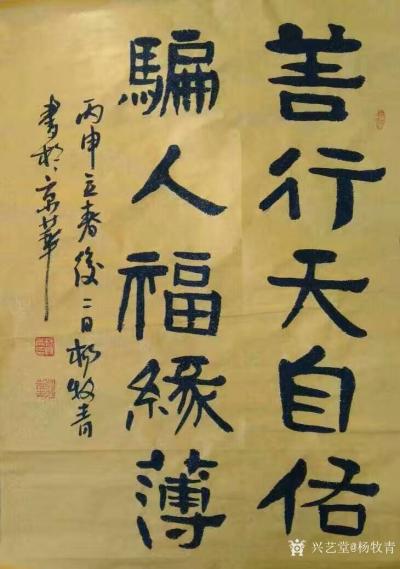 善行天自佑
騙人福緣薄
丙申立春後二日楊牧青
書於京華
兴艺堂@杨牧青